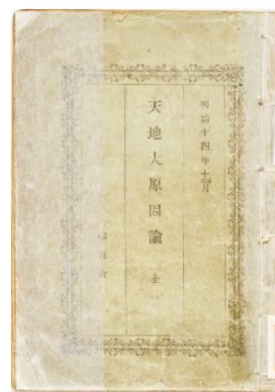 明治十四年十月
天地大原因論 全